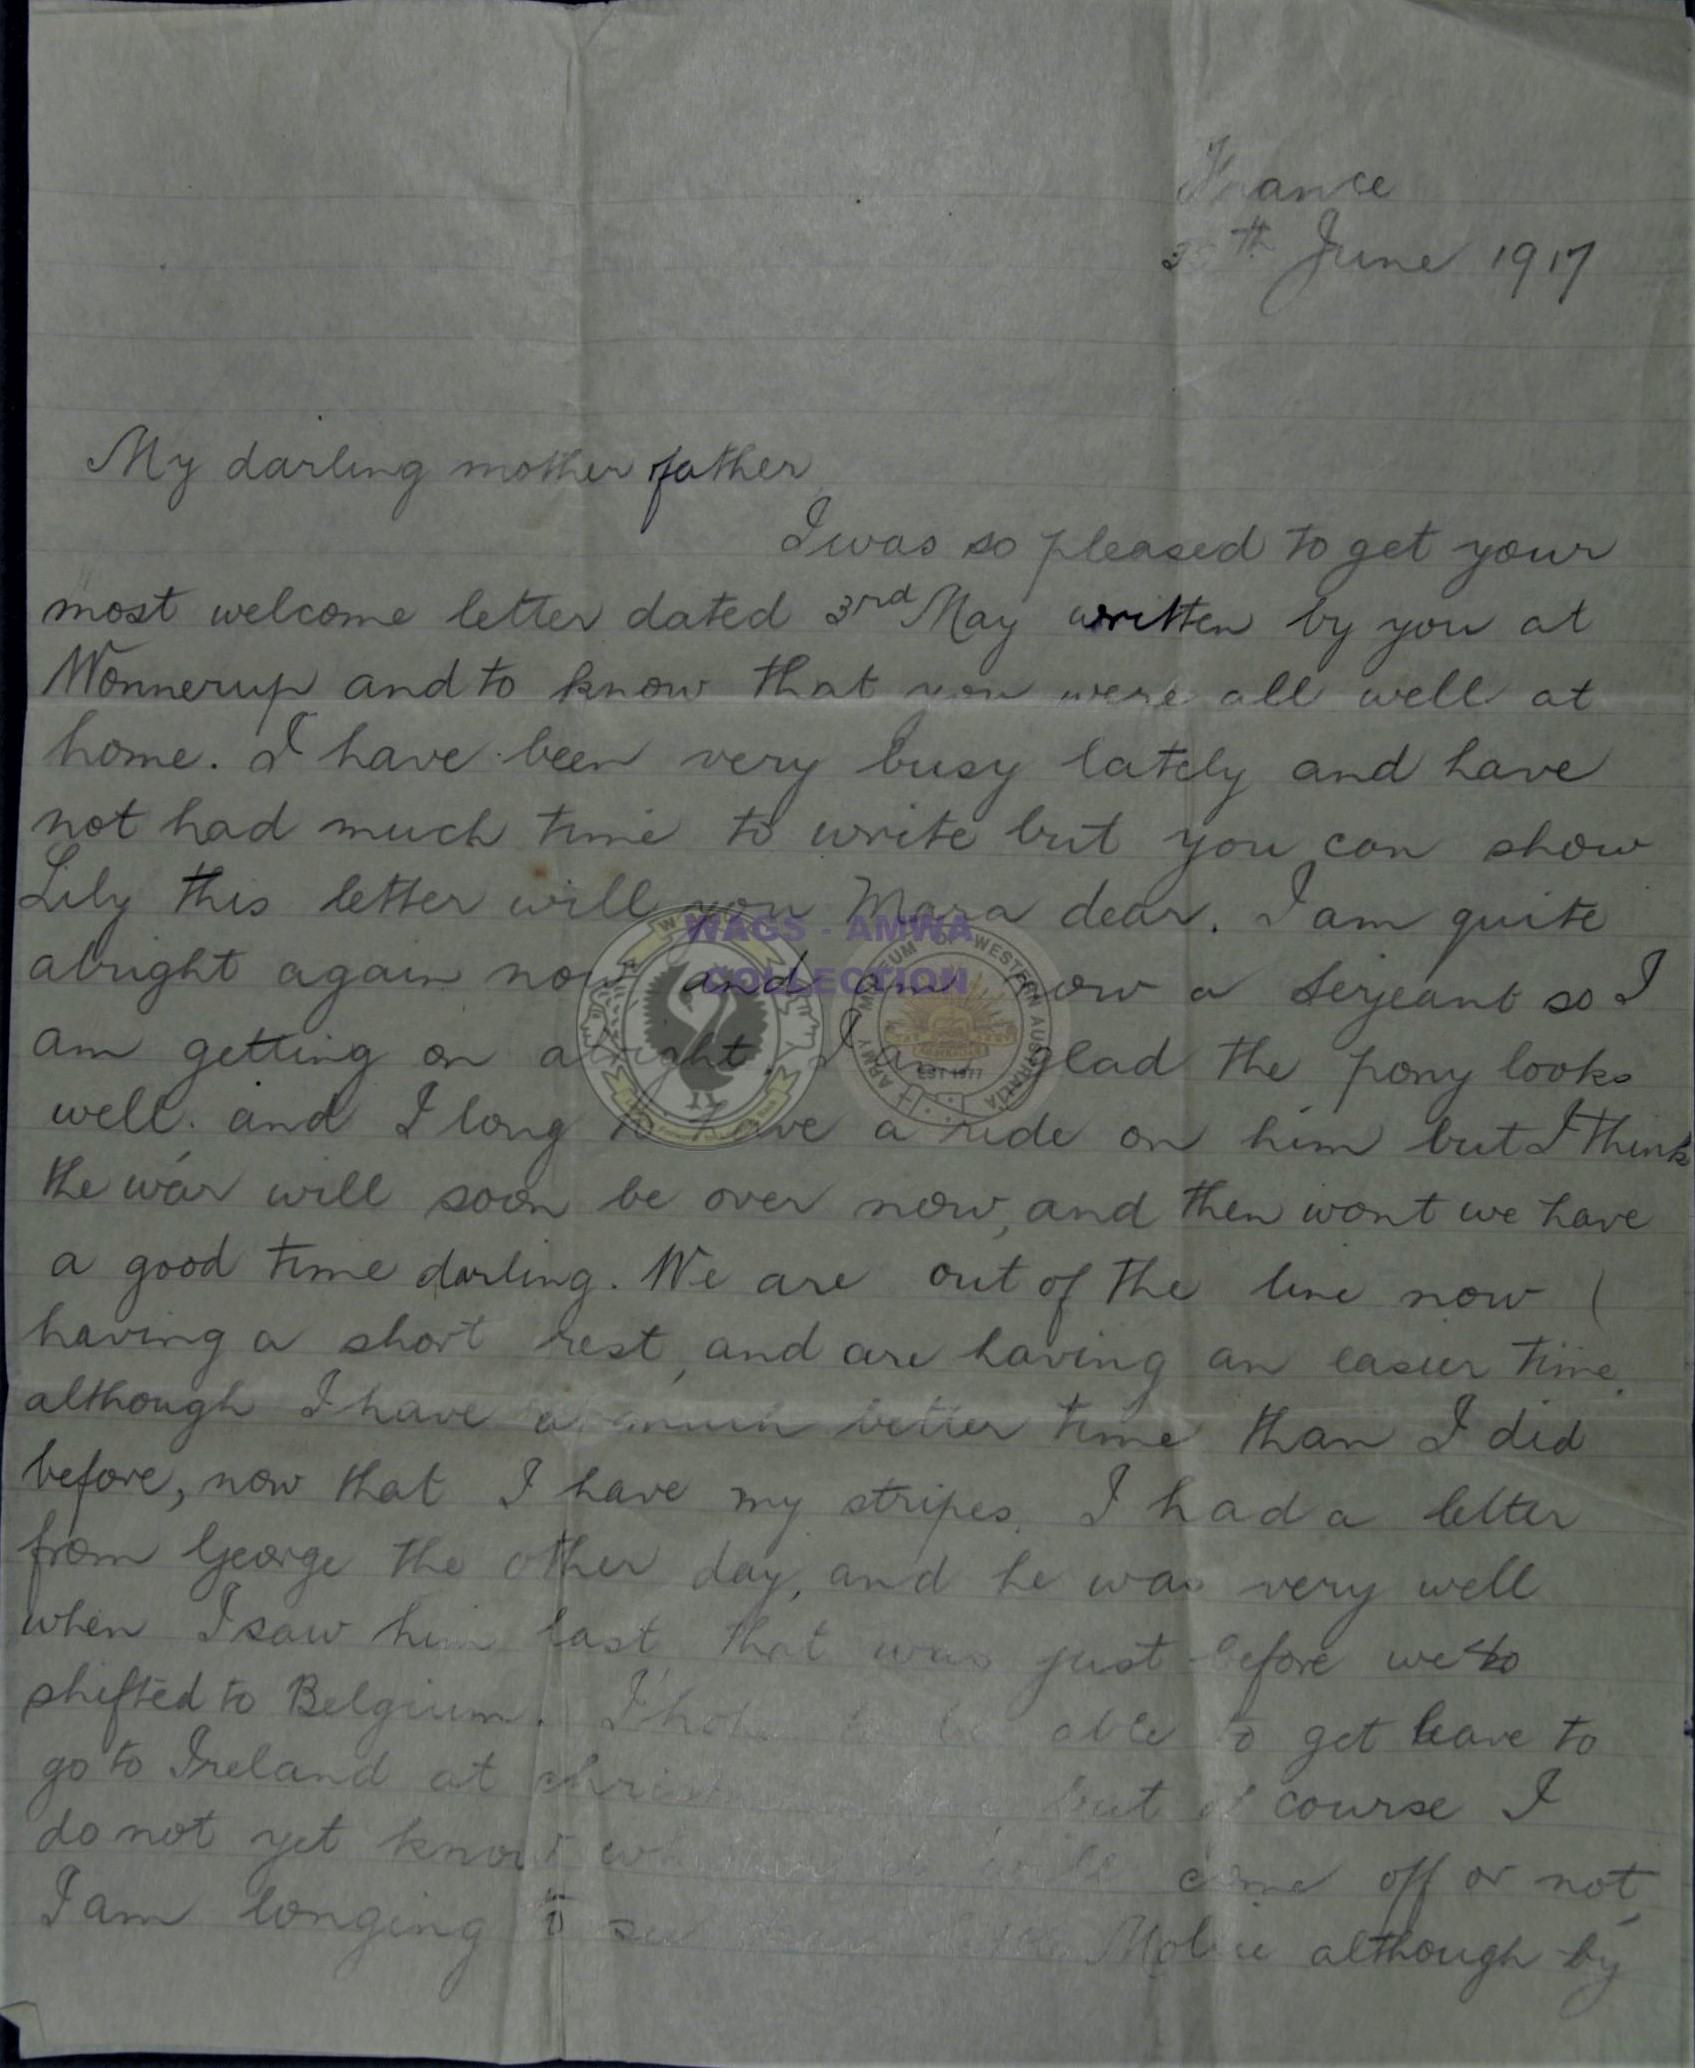 France
30th June 1917
My darling mother father
I was so pleased to get your
most welcome letter dated 3rd May written by you at
Wonnerup and to know that you were all well at
home. I have been very busy lately and have
not had much time to write but you can show
Lily this letter will you Mara dear. I am quite
alright again now and am now a Serjeant so I
am getting on alright. I am glad the pony looks
well. and I long to have a ride on him but I think
the war will soon be over now, and then wont we have
a good time darling. We are out of the line now
having a short rest, and are having an easier time.
although I have a much better time than I did
before, now that I have my stripes. I had a letter
from George the other day, and he was very well
when I saw him last that was just before we
shifted to Belgium. I hope to be able to get leave to
go to Ireland at but of course I
do not yet know whether it will come off or not,
I am longing to see Molie although by
WAGS - AMWA
COLLECTION
ARMY MUSEUM OF WESTERN AUSTRALIA
EST 1977